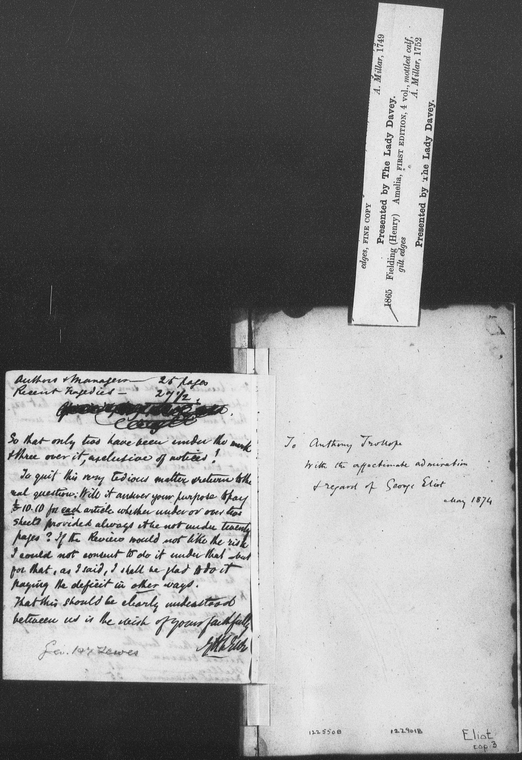 edges, FINE COPY A. Millar, 1749
Presented by The Lady Davey.
1865 Fielding (Henry) Amelia, FIRST EDITION, 4 vol., mottled calf,
gilt edges A. Millar, 1752
Presented by The Lady Davey.
Authors & Managers — 26 pages
Recent Tragedies — 27 1/2
So that only two have been under the mark
& three over it, exclusive of notices!
To quit this very tedious matter & return to the
real question: Will it answer your purpose to pay
£10.10 for each article whether under or over two
sheets provided always it be not under twenty
pages? If the Review would not like the risk
I could not consent to do it under that but
for that, as I said, I shall be glad to do it
paying the deficit in other ways.
That this should be clearly understood
between us is the wish of yours faithfully
Geo. Hy Lewes
To Anthony Trollope
With the affectionate admiration
& regard of George Eliot
May 1874
1225508
1229018
Eliot
cap 3